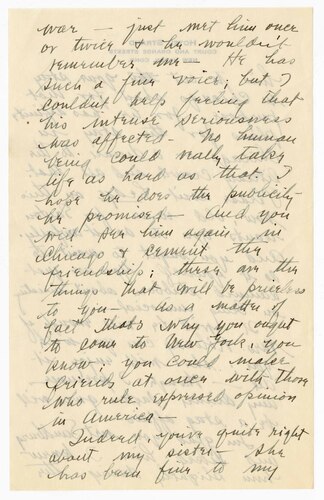 war — just met him once
or twice & he wouldn't
remember me — He has
such a fine voice; but I
couldn't help feeling that
his intense seriousness
was affected — No human
being could really take
life as hard as that. I
hope he does the publicity
he promised — And you
will see him again in
Chicago & cement the
friendship; these are the
things that will be priceless
to you — as a matter of
fact that's why you ought
to come to New York, you
know; you could make
friends at once with those
who rule expressed opinion
in America —
Indeed, you're quite right
about my sister — she
has been fine to my